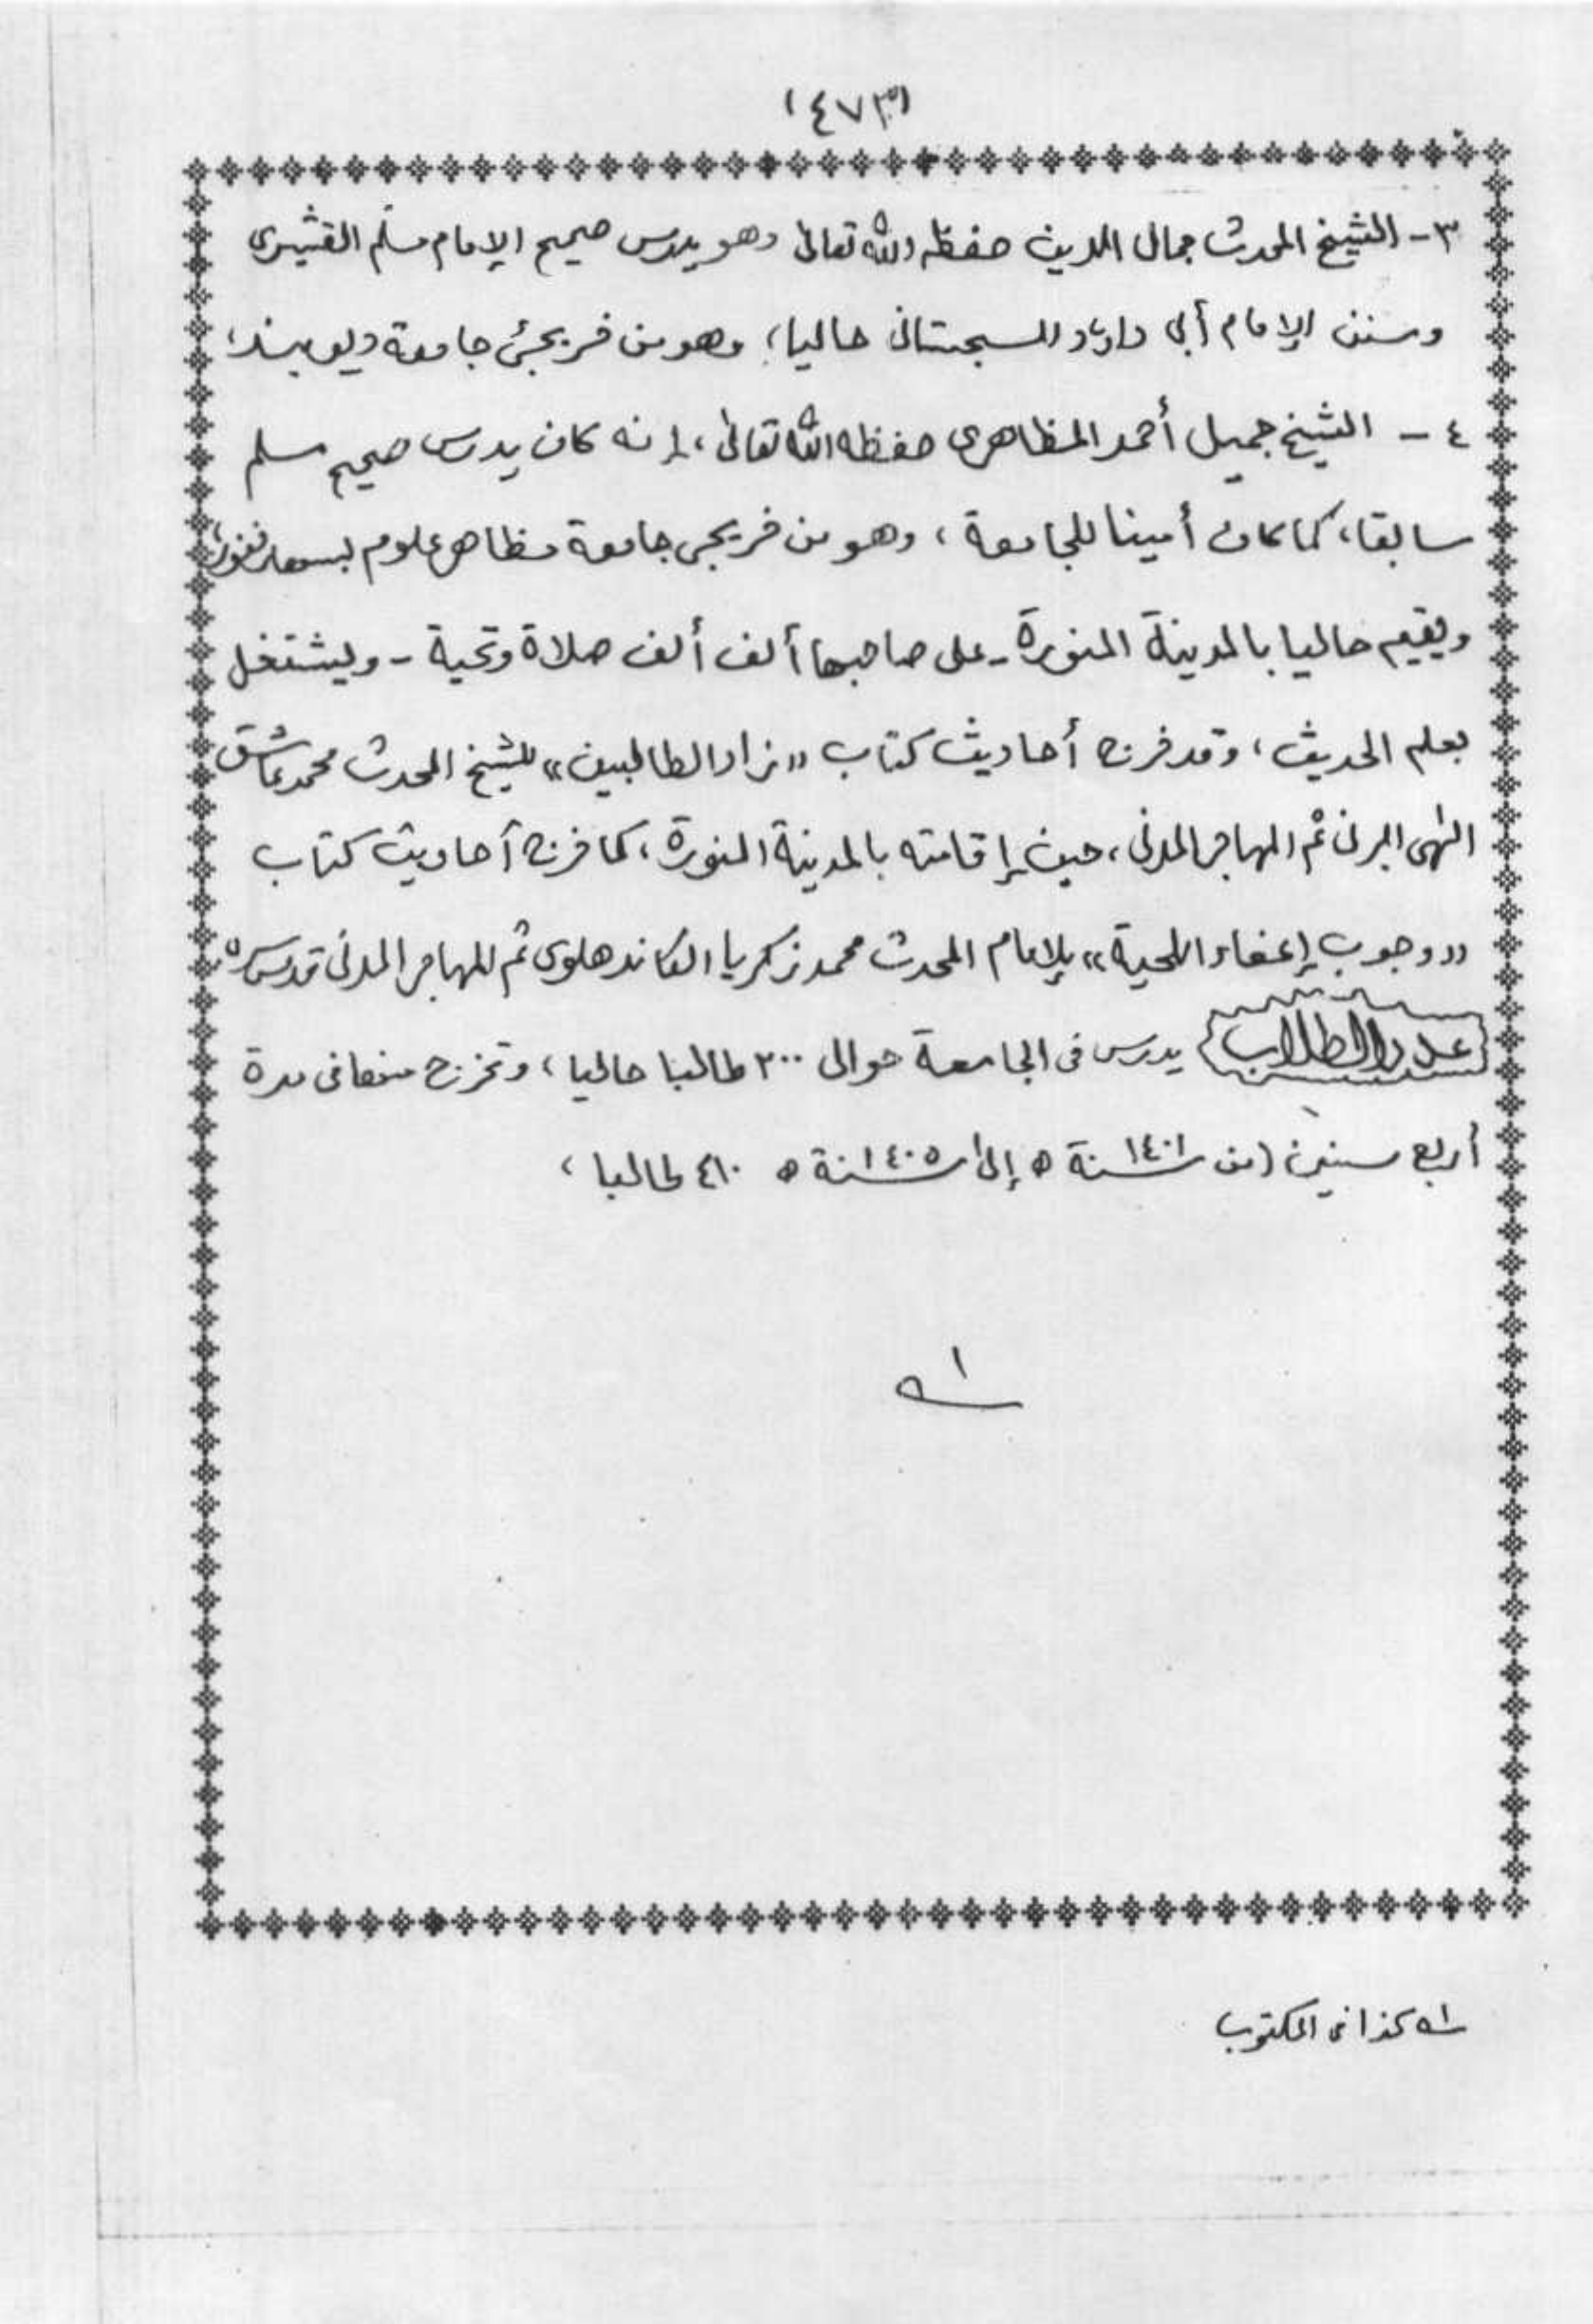 (٤٧٣)
٣- الشيخ المحدث جمال الدين حفظه الله تعالى وهو يدرس صحيح الإمام مسلم القشيرى
وسنن الإمام أبى داود السجستانى حاليا، وهو من خريجى جامعة ديوبند،
٤ - الشيخ جميل أحمد المظاهرى حفظه الله تعالى، إنه كان يدرس صحيح مسلم
سابقا، كما كان أمينا للجامعة، وهو من خريجى جامعة مظاهر علوم بسهارنفور،
ويقيم حاليا بالمدينة المنورة - على صاحبها ألف ألف صلاة وتحية - ويشتغل
بعلم الحديث، وقد خرج أحاديث كتاب «زاد الطالبين» للشيخ المحدث محمد عاشق
الٰهى البرنى ثم المهاجر المدنى، حين إقامته بالمدينة المنورة، كما خرج أحاديث كتاب
«وجوب إعفاء اللحية» للإمام المحدث محمد زكريا الكاندهلوى ثم المهاجر المدنى قدس سره
عدد الطلاب يدرس فى الجامعة حوالى ٢٠٠ طالبا حاليا، وتخرج منها فى مدة
أربع سنين (من سنة ١٤٠١ ه إلى سنة ١٤٠٥ ه ٤١٠ طالبا،
١ـه
١ـه كذا فى المكتوب